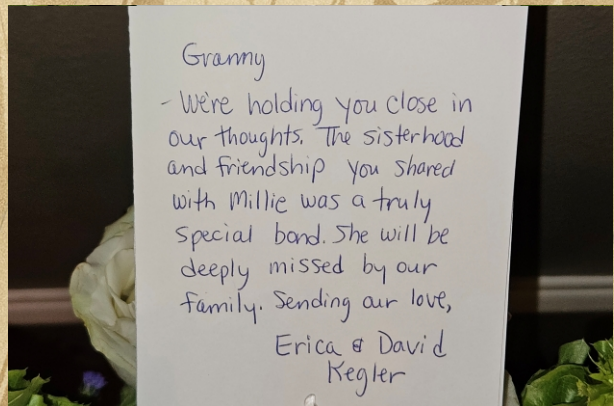 Granny
- We're holding you close in
our thoughts. The sisterhood
and friendship you shared
with Millie was a truly
special bond. She will be
deeply missed by our
family. Sending our love,
Erica & David
Kegler